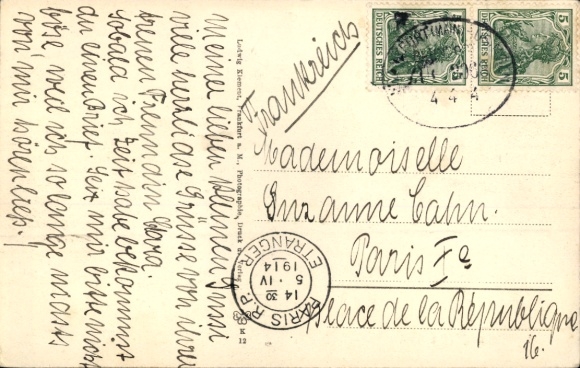 Meiner lieben kleinen Suzi
viele herzliche Grüsse von ihrer
treuen Freundin Dora.
Sobald ich Zeit habe bekommst
du einen Brief. Sei mir bitte nicht
böse weil ich so lange nichts
von mir hören liess!
Ludwig Klement, Frankfurt a. M. Photographie, Druck u. Verlag
K
12
DEUTSCHES REICH
5
DEUTSCHES REICH
5
4 4
Frankreich
Mademoiselle
Suzanne Cahn.
Paris Xe
Place de la République
16.
PARIS R.P.
ETRANGER
14 30
5 · IV
1914